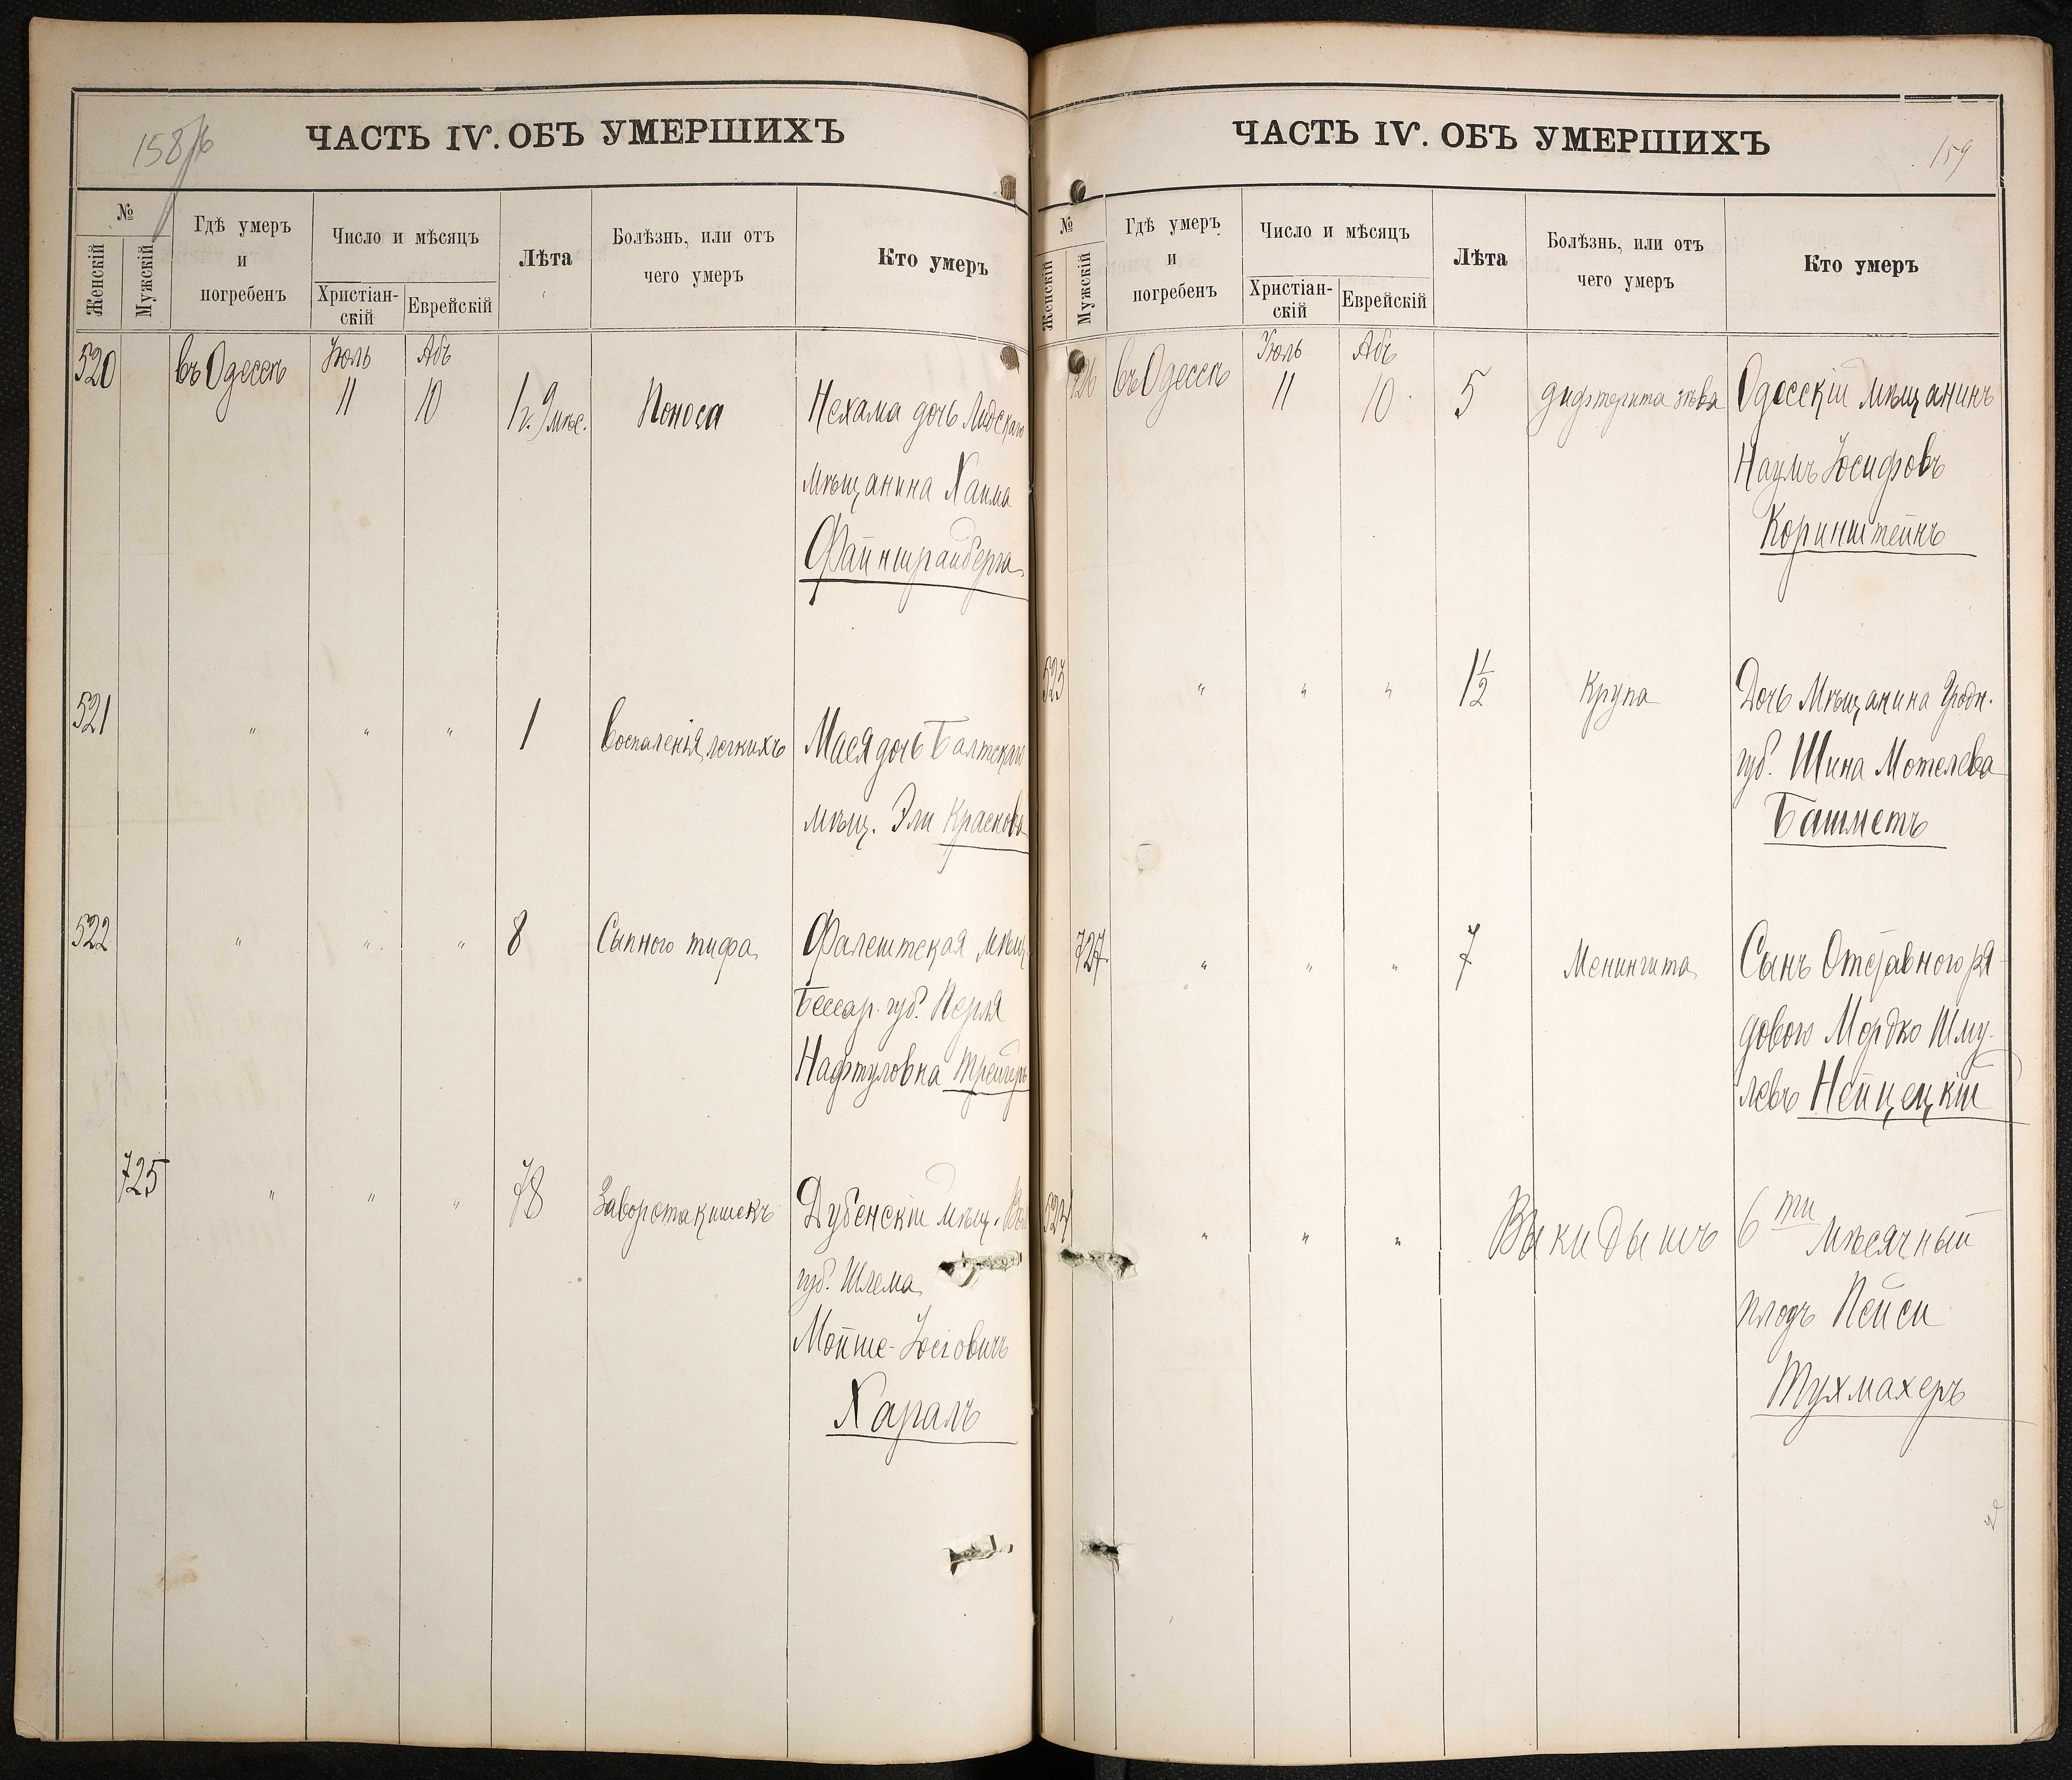 158
ЧАСТЬ IV. ОБЪ УМЕРШИХЪ
№
Женскій
Мужскій
Гдѣ умеръ
и
погребенъ
Число и мѣсяцъ
Христіан-
скій
Еврейскій
Лѣта
Болѣзнь, или отъ
чего умеръ
Кто умеръ
520 въ Одессѣ Іюль 11 Абъ 10 1 г. 9 мѣс. Поноса Нехама дочь Лидскаго
мѣщанина Хаима
Файнштрайберга
521 " " " 1 Воспаленія легкихъ Мася дочь Балтскаго
мѣщ. Эли Краснова
522 " " " 8 Сыпного тифа Фалештская мѣщ.
Бессар. губ. Перля
Нафтуловна Трейгеръ
725 " " " 78 Заворота кишекъ Дубенскій мѣщ.
губ. Шлема
Мойше-Іосіовичъ
Харалъ
ЧАСТЬ IV. ОБЪ УМЕРШИХЪ
159
№
Женскій
Мужскій
Гдѣ умеръ
и
погребенъ
Число и мѣсяцъ
Христіан-
скій
Еврейскій
Лѣта
Болѣзнь, или отъ
чего умеръ
Кто умеръ
726 въ Одессѣ Іюль 11 Абъ 10 5 дифтерита зѣва Одесскій мѣщанинъ
Наумъ Іосифовъ
Коринштейнъ
523 " " " 1½ Крупа Дочь Мѣщанина Гродн.
губ. Шина Мотелева
Башметъ
727 " " " 7 Менингита Сынъ Отставного ря-
дового Мордко Шму-
левъ Нейцецкій
524 " " " Выкидышъ 6ти мѣсячный
плодъ Пейси
Тухмахеръ